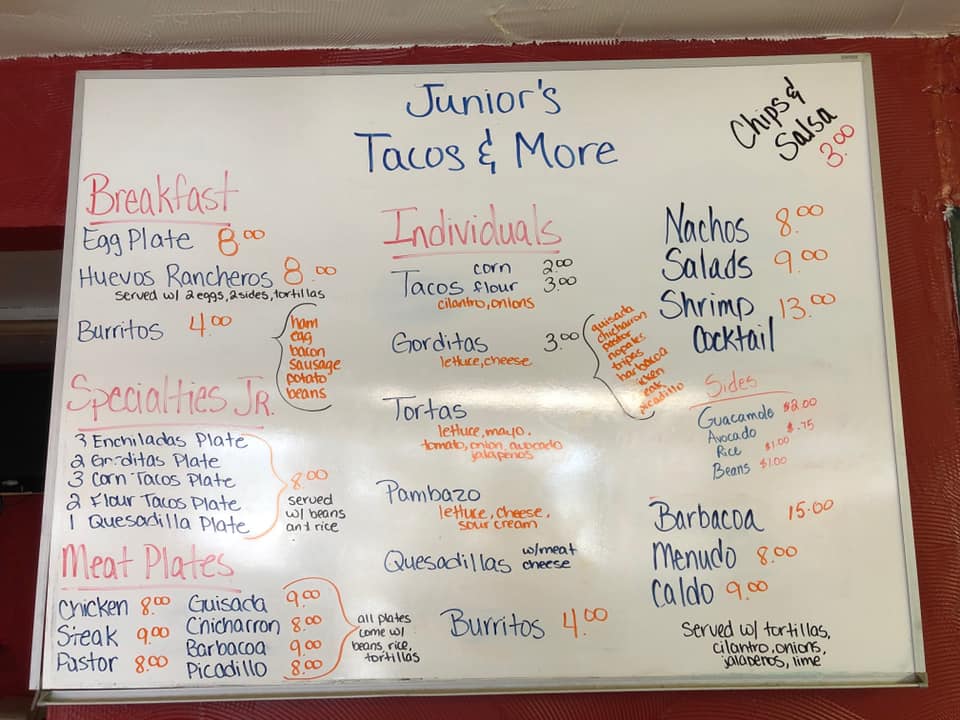 Junior's
Tacos & More
Chips &
Salsa
3.00
Breakfast
Egg Plate 8.00
Huevos Rancheros 8.00
served w/ 2 eggs, 2 sides, tortillas
Burritos 4.00
ham
egg
bacon
sausage
potato
beans
Specialties Jr.
3 Enchiladas Plate
2 Gorditas Plate
3 Corn Tacos Plate
2 Flour Tacos Plate
1 Quesadilla Plate
8.00
served
w/ beans
and rice
Meat Plates
Chicken 8.00
Steak 9.00
Pastor 8.00
Guisada 9.00
Chicharron 8.00
Barbacoa 9.00
Picadillo 8.00
all plates
come w/
beans, rice,
tortillas
Individuals
corn 2.00
Tacos flour 3.00
cilantro, onions
Gorditas 3.00
lettuce, cheese
guisado
chicharron
pastor
nopales
tripas
barbacoa
icken
eak
picadillo
Tortas
lettuce, mayo,
tomato, onion, avocado
jalapenos
Pambazo
lettuce, cheese,
sour cream
Quesadillas w/meat
cheese
Burritos 4.00
Nachos 8.00
Salads 9.00
Shrimp 13.00
Cocktail
Sides
Guacamole $2.00
Avocado $.75
Rice $1.00
Beans $1.00
Barbacoa 15.00
Menudo 8.00
Caldo 9.00
Served w/ tortillas,
cilantro, onions,
jalapenos, lime